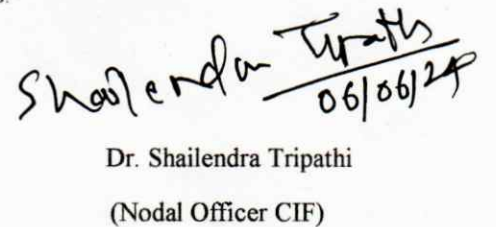 Shailendra Tripathi
06/06/24
Dr. Shailendra Tripathi
(Nodal Officer CIF)